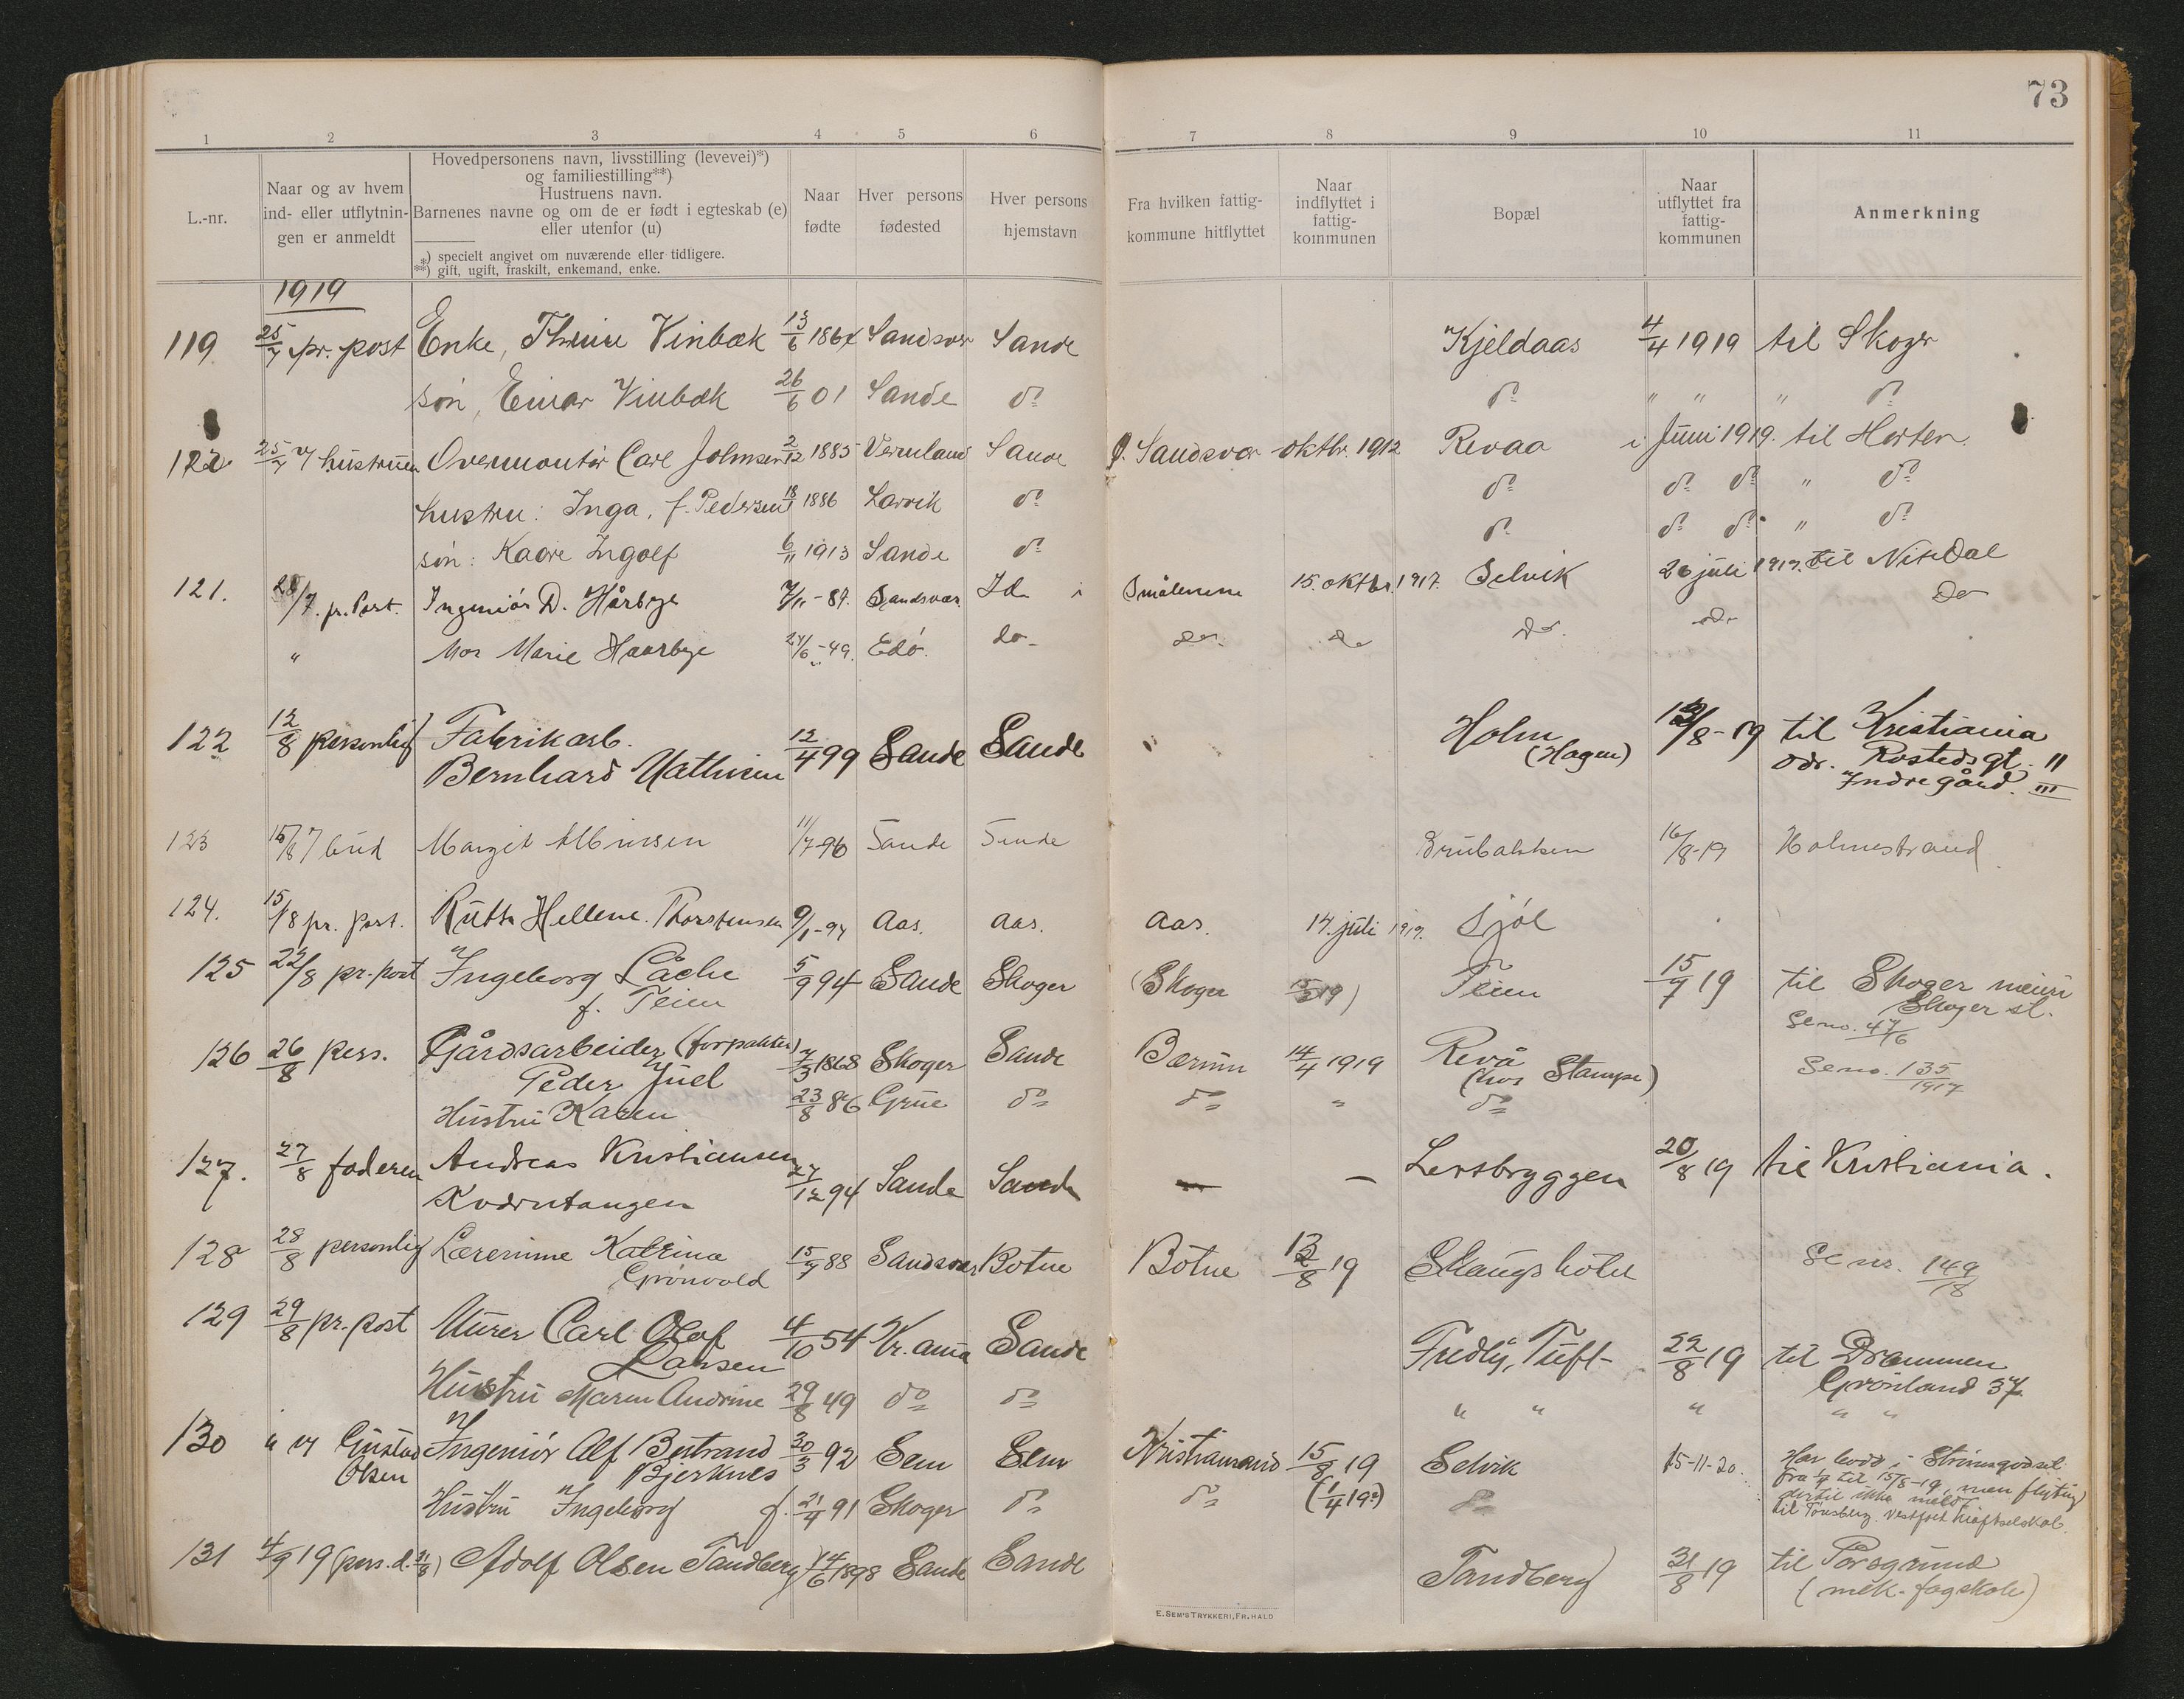 73
1 2 3 4 5 6 7 8 9 10 11
L.-nr.
Naar og av hvem
ind- eller utflytnin-
gen er anmeldt
Hovedpersonens navn, livsstilling (levevei)*)
og familiestilling**)
Hustruens navn.
Barnenes navne og om de er født i egteskab (e)
eller utenfor (u)
*) specielt angivet om nuværende eller tidligere.
**) gift, ugift, fraskilt, enkemand, enke.
Naar
fødte
Hver persons
fødested
Hver persons
hjemstavn
Fra hvilken fattig-
kommune hitflyttet
Naar
indflyttet i
fattig-
kommunen
Bopæl
Naar
utflyttet fra
fattig-
kommunen
Anmerkning
1919
119 25/7 pr. post Enke, Vinbæk 13/6 1867 Sandsvær Sande Kjeldaas 4/4 1919 til Skoger
søn, Einar Vinbæk 26/6 01 Sande do do " " " do
122 25/7 v/ hustruen Overmontør Carl Johnsen 2/12 1885 Vermland Sande Sandsvær oktbr. 1912 Revaa i Juni 1919. til Horten.
hustru: Inga, f. Pedersen 18/1 1886 Larvik do do do do " do
søn: Kaare Ingolf 6/11 1913 Sande do do do do " do
121. 28/7. pr. Post. Ingeniør D. Hårbye 7/11-89. Sandsvær. Id i Smålenene 15. oktbr. 1917. Selvik 26 juli 1919. til Nitedal
" Mor Marie Haarbye 24/6-49. Edø. do- do. do do. do Do
122 12/8 personlig Fabrikarb. 12/4 99 Sande Sande " Holm 12/8-19 til Kristiania
Bernhard Mathisen (Hagen) adr. Rostedsgt. 11
Indregård. III
123 15/8 v/ bud Margit Albinsen 11/7-96 Sande Sande Brubakken 16/8-19 Holmestrand
124. 15/8 pr. post. Ruth Hellene Thorstensen 9/1-94 Aas. Aas. Aas. 14. juli 1919. Sjøl
125 22/8 pr. post Ingeborg Låche 5/9 94 Sande Skoger (Skoger 19) Teien 15/7 19 til Skoger meieri
f. Teien Skoger st.
Se no. 47/6
126 26/8 pers. Gårdsarbeider (forpakter) 7/3 1868 Skoger Sande Bærum 14/4 1919 Revå Se no. 135/1917
Peder Juel (hos Stampe)
Hustru Karen 23/8 86 Grue do do " do
127. 27/8 faderen Andreas Kristiansen 27/12 94 Sande Sande — — Lersbryggen 20/8 19 til Kristiania.
Kodrutangen
128 28/8 personlig Lærerinne Katrina 15/7 88 Sandsvær Botne Botne 13/8 19 Skaugs hotel Se nr. 149/8
Grønvold
129 29/8 pr. post Murer Carl Olaf 4/10 54 Kr.ania Sande Fredly, Tuft- 22/8 19 til Drammen
Larsen Grønland 37
Hustru Maren Andrine 29/8 49 do do " " " " "
130 " v/ Gustav Ingeniør Alf Bertrand 30/3 92 Sem Sem Kristiansand 15/8 19 Selvik 15-11-20. Har bodd i Strømsgodset
Olsen Bjerknes fra 1/4 til 15/8-19, men flytning
dertil ikke meldt
Hustru Ingeborg f. 21/4 91 Skoger do do (1/4 19?) do til Tønsberg. Vestfold kraftselskab.
131 4/9 19 (pers. d. 31/8) Adolf Olsen Tandberg 14/6 1898 Sande Sande Tandberg 31/8 19 til Porsgrund
(mek. fagskole)
E. SEM'S TRYKKERI, FR.HALD